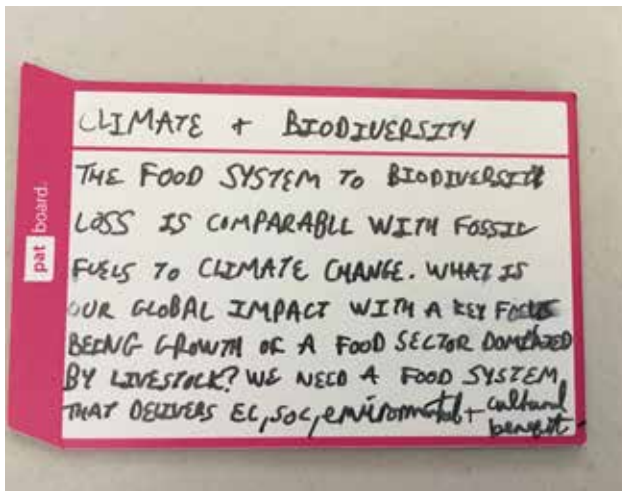 CLIMATE + BIODIVERSITY
THE FOOD SYSTEM TO BIODIVERSITY
LOSS IS COMPARABLE WITH FOSSIL
FUELS TO CLIMATE CHANGE. WHAT IS
OUR GLOBAL IMPACT WITH A KEY FOCUS
BEING GROWTH OF A FOOD SECTOR DOMINATED
BY LIVESTOCK? WE NEED A FOOD SYSTEM
THAT DELIVERS EC, SOC, enviromental + cultural
benefit.
pat board.